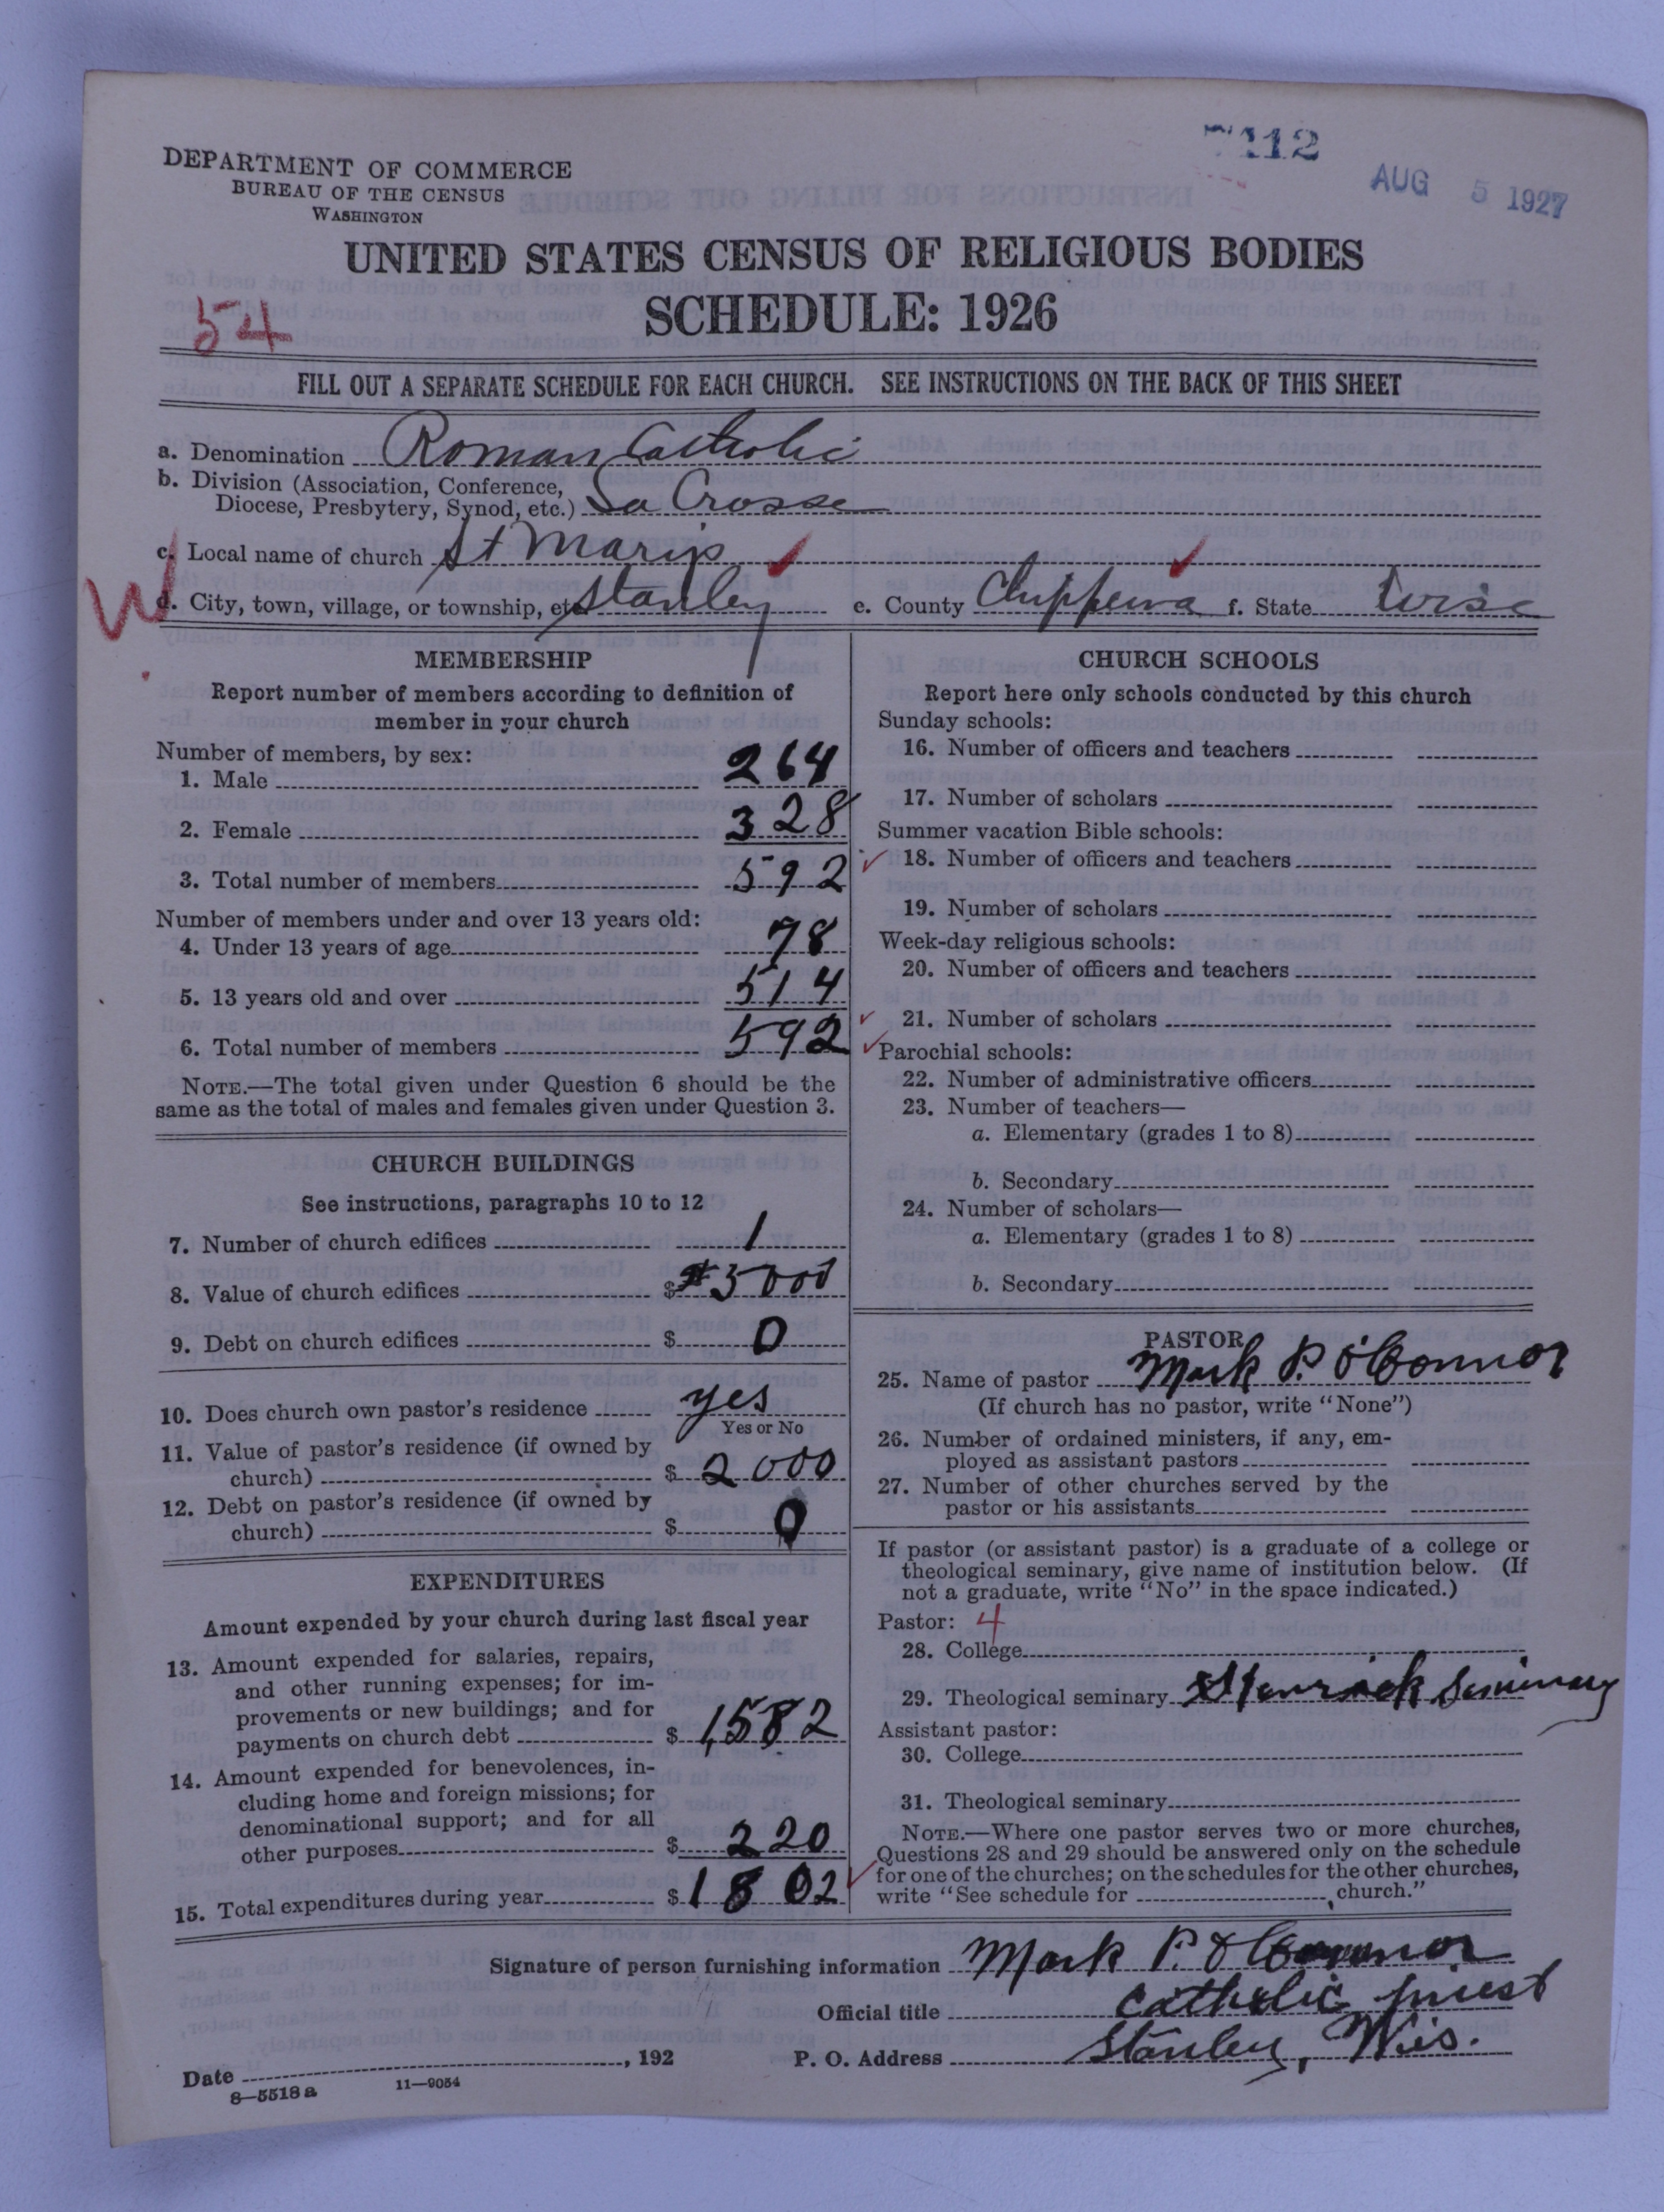 112
AUG 5 1927
DEPARTMENT OF COMMERCE
BUREAU OF THE CENSUS
WASHINGTON
UNITED STATES CENSUS OF RELIGIOUS BODIES
SCHEDULE: 1926
54
FILL OUT A SEPARATE SCHEDULE FOR EACH CHURCH. SEE INSTRUCTIONS ON THE BACK OF THIS SHEET
a. Denomination Roman Catholic
b. Division (Association, Conference, Diocese, Presbytery, Synod, etc.) La Crosse
c. Local name of church St Mary's
W
d. City, town, village, or township, etc. Stanley e. County Chippewa f. State Wisc
MEMBERSHIP
Report number of members according to definition of
member in your church
Number of members, by sex:
1. Male 264
2. Female 328
3. Total number of members 592
Number of members under and over 13 years old:
4. Under 13 years of age 78
5. 13 years old and over 514
6. Total number of members 592
NOTE.—The total given under Question 6 should be the
same as the total of males and females given under Question 3.
CHURCH BUILDINGS
See instructions, paragraphs 10 to 12
7. Number of church edifices 1
8. Value of church edifices $ 5000
9. Debt on church edifices $ 0
10. Does church own pastor's residence yes
Yes or No
11. Value of pastor's residence (if owned by
church) $ 2000
12. Debt on pastor's residence (if owned by
church) $ 0
EXPENDITURES
Amount expended by your church during last fiscal year
13. Amount expended for salaries, repairs,
and other running expenses; for im-
provements or new buildings; and for
payments on church debt $ 1,582
14. Amount expended for benevolences, in-
cluding home and foreign missions; for
denominational support; and for all
other purposes $ 220
15. Total expenditures during year $ 1802
CHURCH SCHOOLS
Report here only schools conducted by this church
Sunday schools:
16. Number of officers and teachers
17. Number of scholars
Summer vacation Bible schools:
18. Number of officers and teachers
19. Number of scholars
Week-day religious schools:
20. Number of officers and teachers
21. Number of scholars
Parochial schools:
22. Number of administrative officers
23. Number of teachers—
a. Elementary (grades 1 to 8)
b. Secondary
24. Number of scholars—
a. Elementary (grades 1 to 8)
b. Secondary
PASTOR
25. Name of pastor Mark P. O'Connor
(If church has no pastor, write "None")
26. Number of ordained ministers, if any, em-
ployed as assistant pastors
27. Number of other churches served by the
pastor or his assistants
If pastor (or assistant pastor) is a graduate of a college or
theological seminary, give name of institution below. (If
not a graduate, write "No" in the space indicated.)
Pastor: 4
28. College
29. Theological seminary Seminary
Assistant pastor:
30. College
31. Theological seminary
NOTE.—Where one pastor serves two or more churches,
Questions 28 and 29 should be answered only on the schedule
for one of the churches; on the schedules for the other churches,
write "See schedule for church."
Signature of person furnishing information Mark P. O'Connor
Official title Catholic priest
Date , 192 P. O. Address Stanley, Wis.
8—5518 a 11—9054